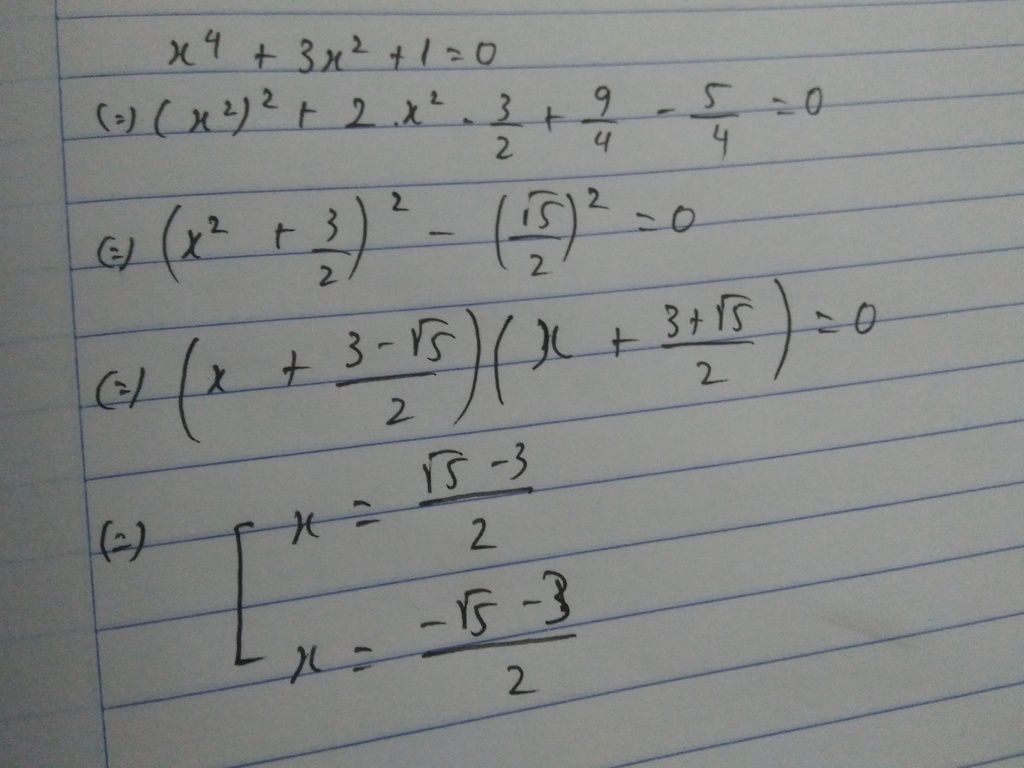 x⁴ + 3x² + 1 = 0
(=) (x²)² + 2.x² . 3/2 + 9/4 - 5/4 = 0
(=) (x² + 3/2)² - (√5/2)² = 0
(=) (x + (3-√5)/2)(x + (3+√5)/2) = 0
(=) [ x = (√5 - 3)/2
x = (-√5 - 3)/2